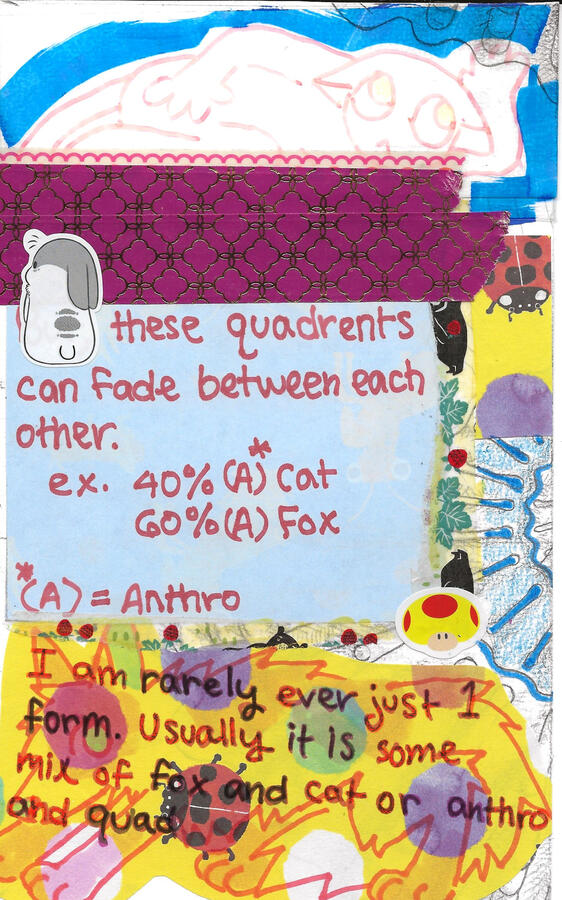 these quadrents
can fade between each
other.
ex. 40% (A)* Cat
60% (A) Fox
*(A) = Anthro
I am rarely ever just 1
form. Usually it is some
mix of fox and cat or anthro
and quad